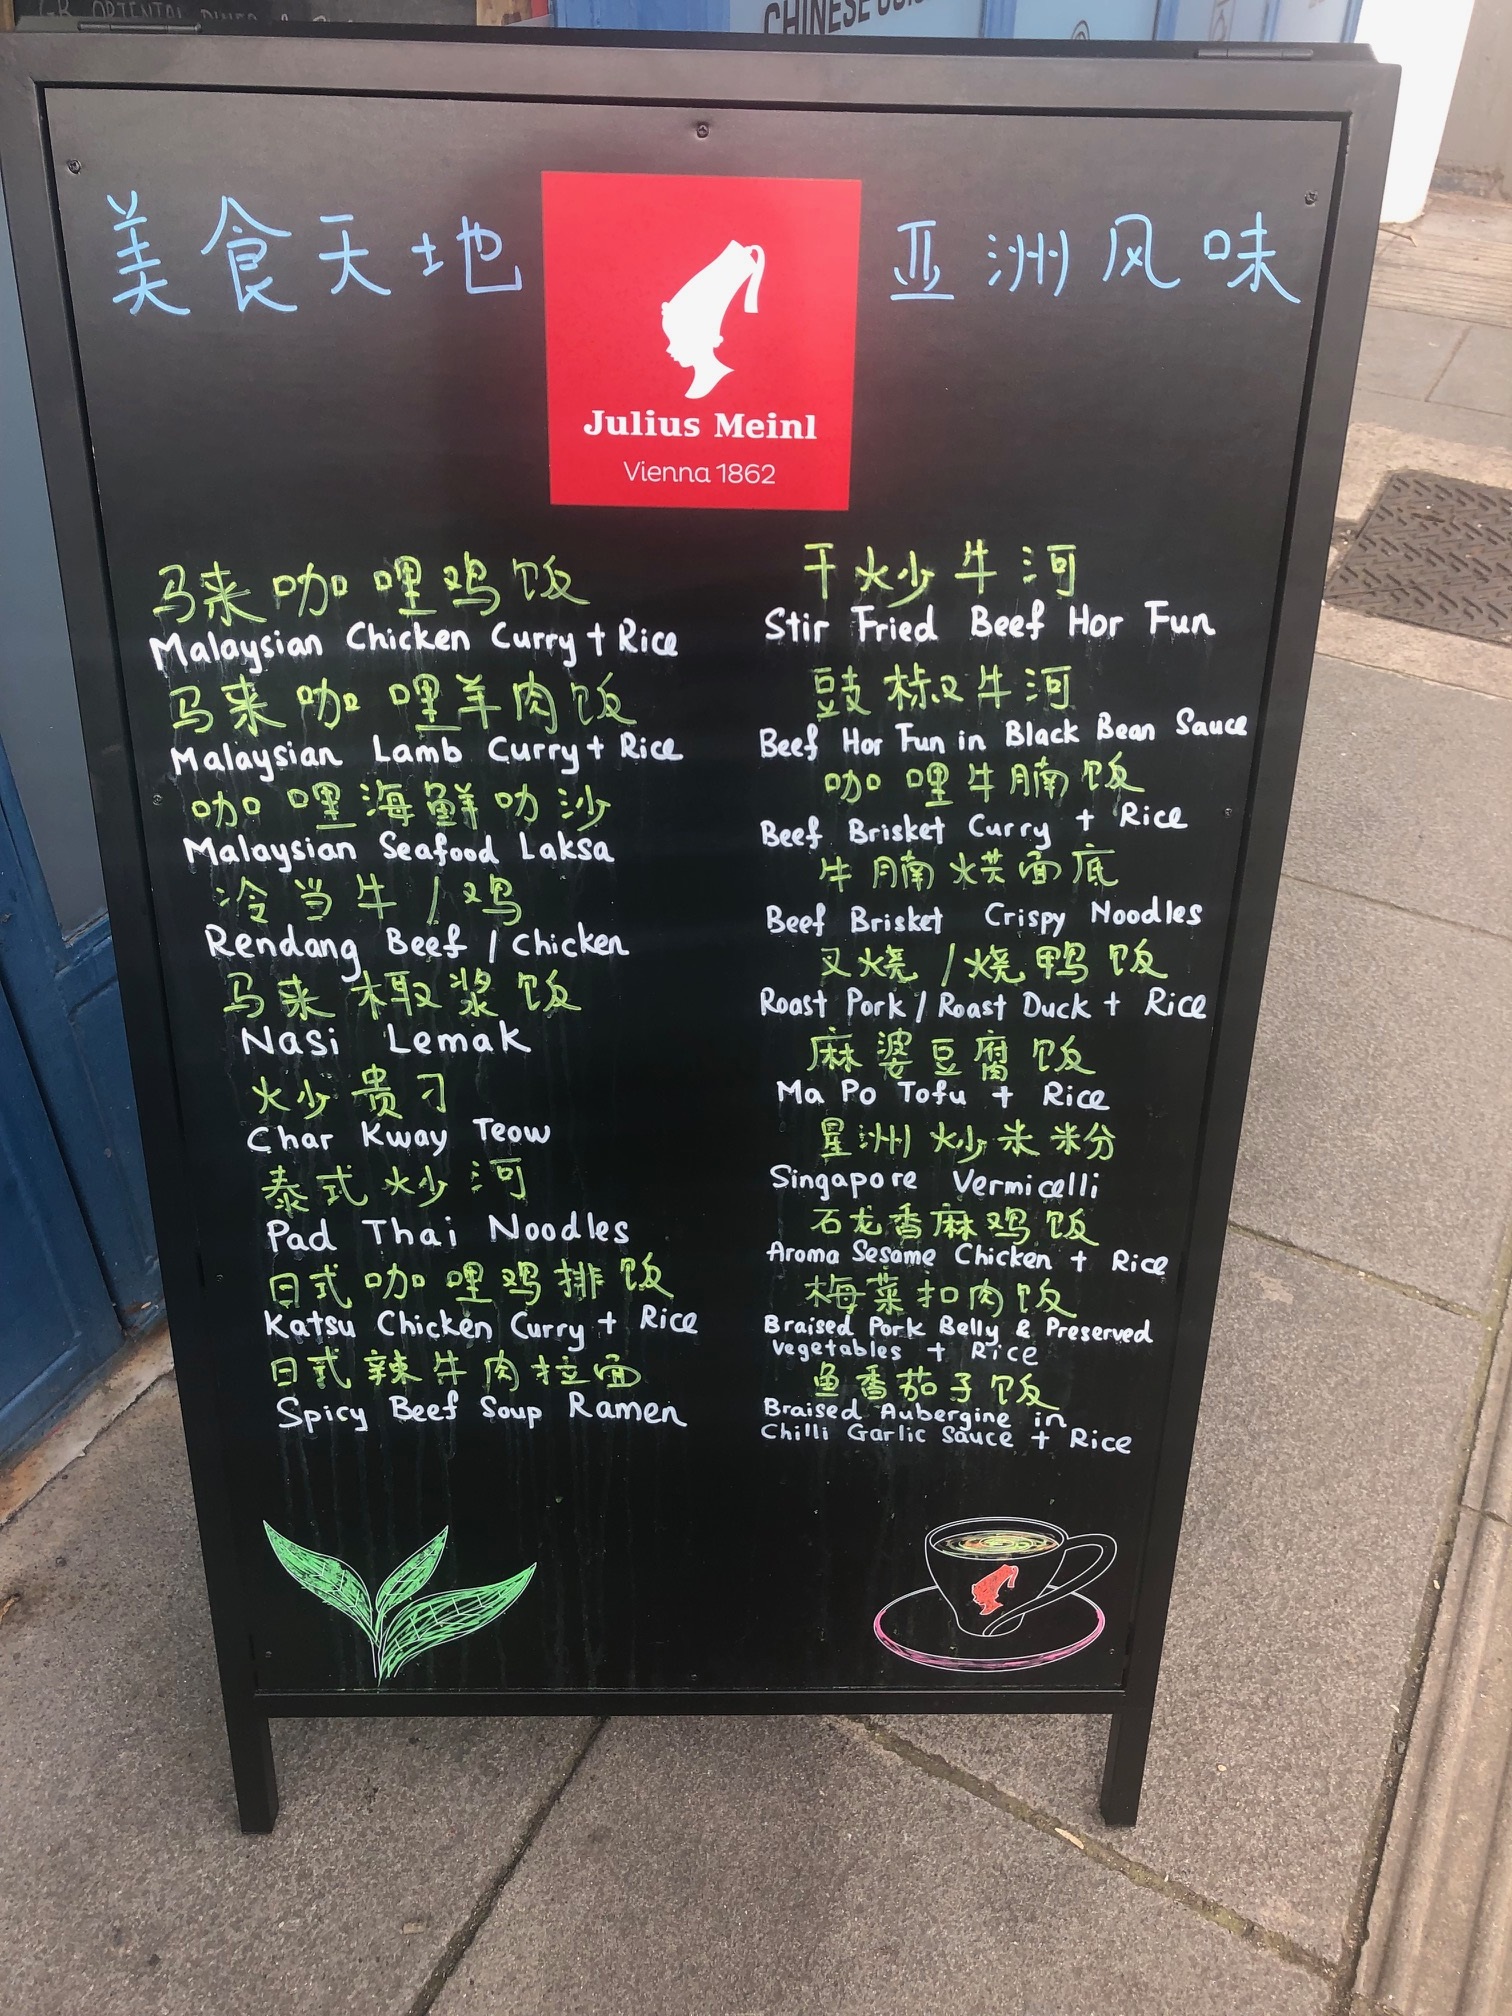 GR ORIENTAL DINER
CHINESE
美食天地
亚洲风味
Julius Meinl
Vienna 1862
马来咖哩鸡饭
Malaysian Chicken Curry + Rice
马来咖哩羊肉饭
Malaysian Lamb Curry + Rice
咖哩海鲜叻沙
Malaysian Seafood Laksa
冷当牛/鸡
Rendang Beef / Chicken
马来椰浆饭
Nasi Lemak
炒贵刁
Char Kway Teow
泰式炒河
Pad Thai Noodles
日式咖哩鸡排饭
Katsu Chicken Curry + Rice
日式辣牛肉拉面
Spicy Beef Soup Ramen
干炒牛河
Stir Fried Beef Hor Fun
豉椒牛河
Beef Hor Fun in Black Bean Sauce
咖哩牛腩饭
Beef Brisket Curry + Rice
牛腩烘面底
Beef Brisket Crispy Noodles
叉烧/烧鸭饭
Roast Pork / Roast Duck + Rice
麻婆豆腐饭
Ma Po Tofu + Rice
星洲炒米粉
Singapore Vermicelli
石龙香麻鸡饭
Aroma Sesame Chicken + Rice
梅菜扣肉饭
Braised Pork Belly & Preserved
Vegetables + Rice
鱼香茄子饭
Braised Aubergine in
Chilli Garlic Sauce + Rice